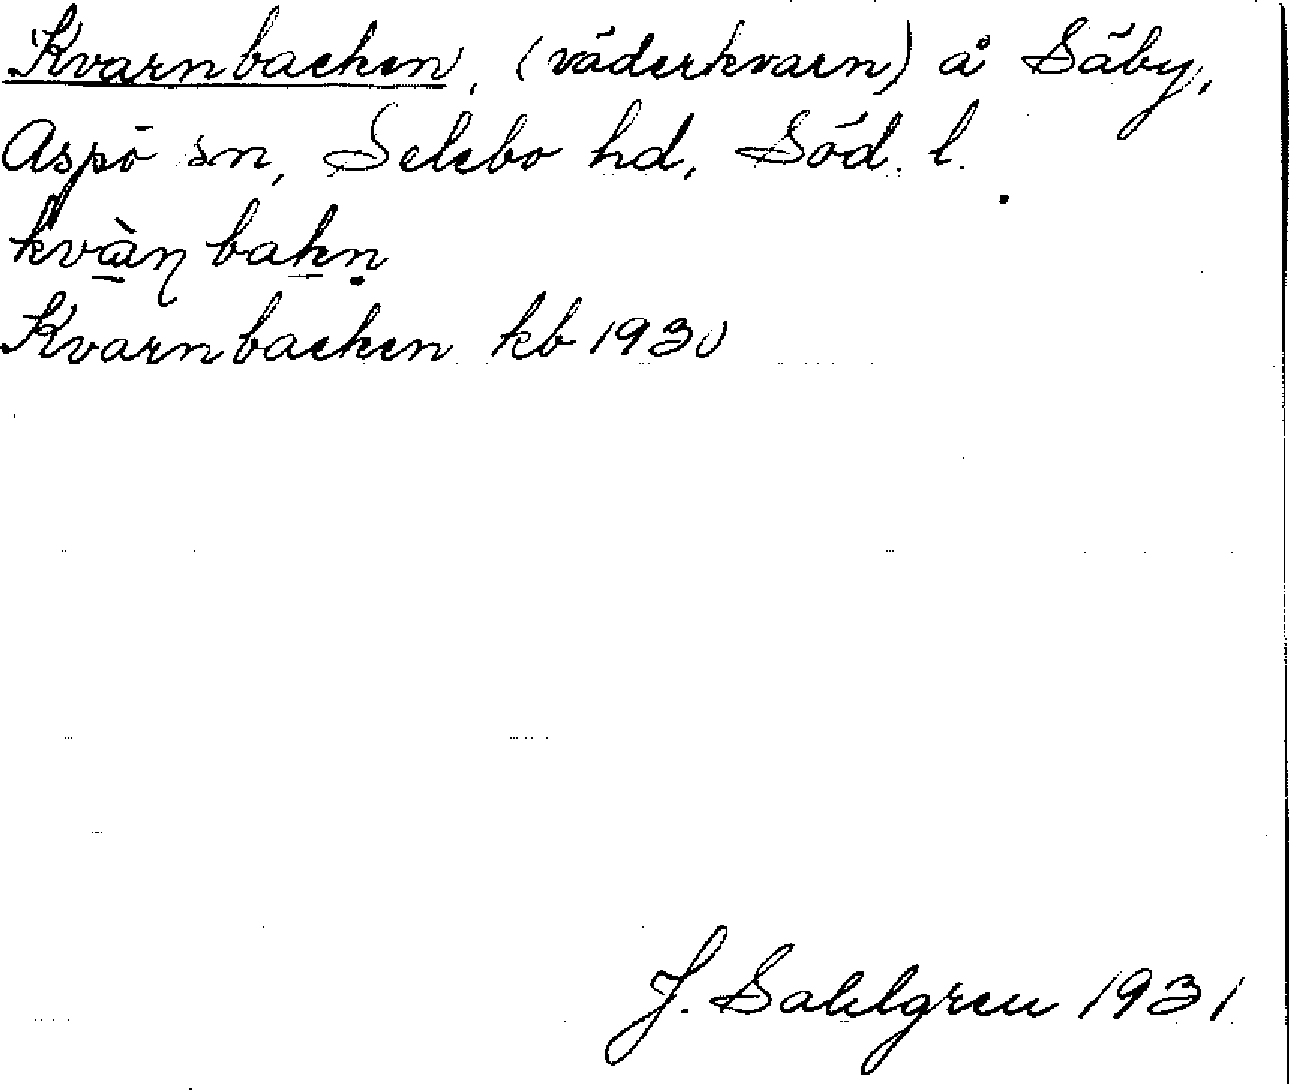 Kvarnbacken, (väderkvarn) å Säby,
Aspö sn, Selebo hd, Söd. l.
kvàɳbakn̥
Kvarnbacken kb 1930
J. Sahlgren 1931